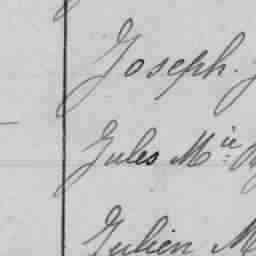 Joseph.
Jules M^ie
Julien M